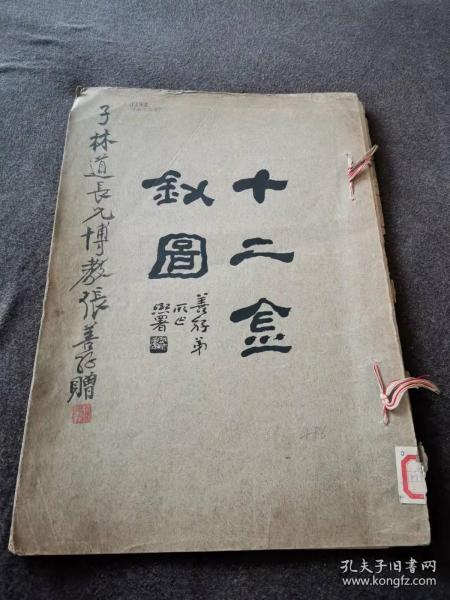 十二金
釵圖
善孖弟
熙署
子林道長兄博教張善孖贈
孔夫子旧书网
www.kongfz.com